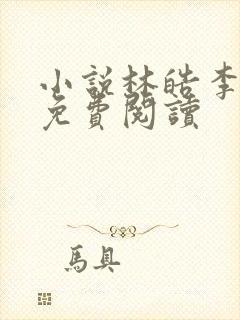 小說林皓李
免費閱讀
馬具